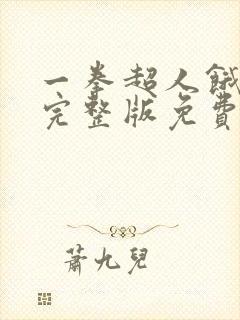 一拳超人餓
完整版免費
蕭九兒